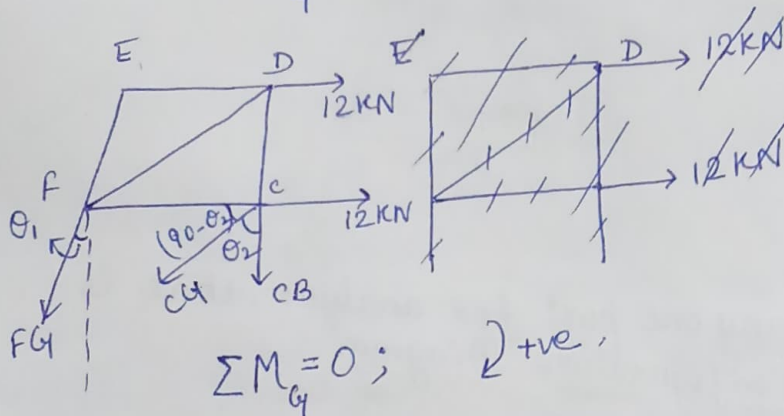 E D 12KN
F C 12KN
θ₁ (90-θ₂) θ₂
FG CG CB
E D 12KN
12KN
ΣM_G = 0 ; +ve .